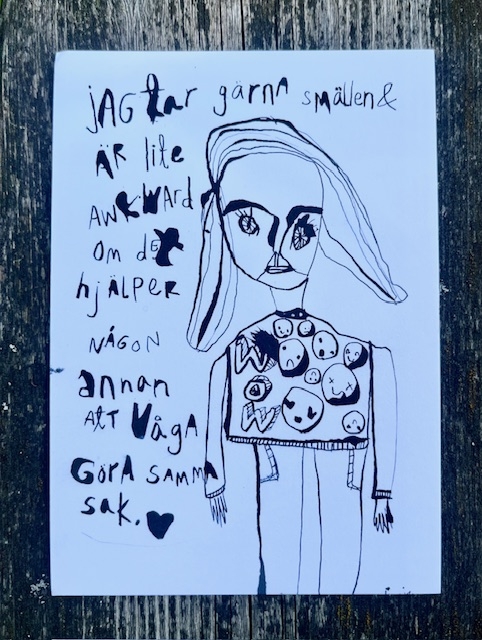 jAG tar gärna smällen &
ÄR lite
AWKWARd
om det
hjÄLPER
NÅGON
annan
Att VågA
GÖRA SAMMA
sak. ♥
WOW